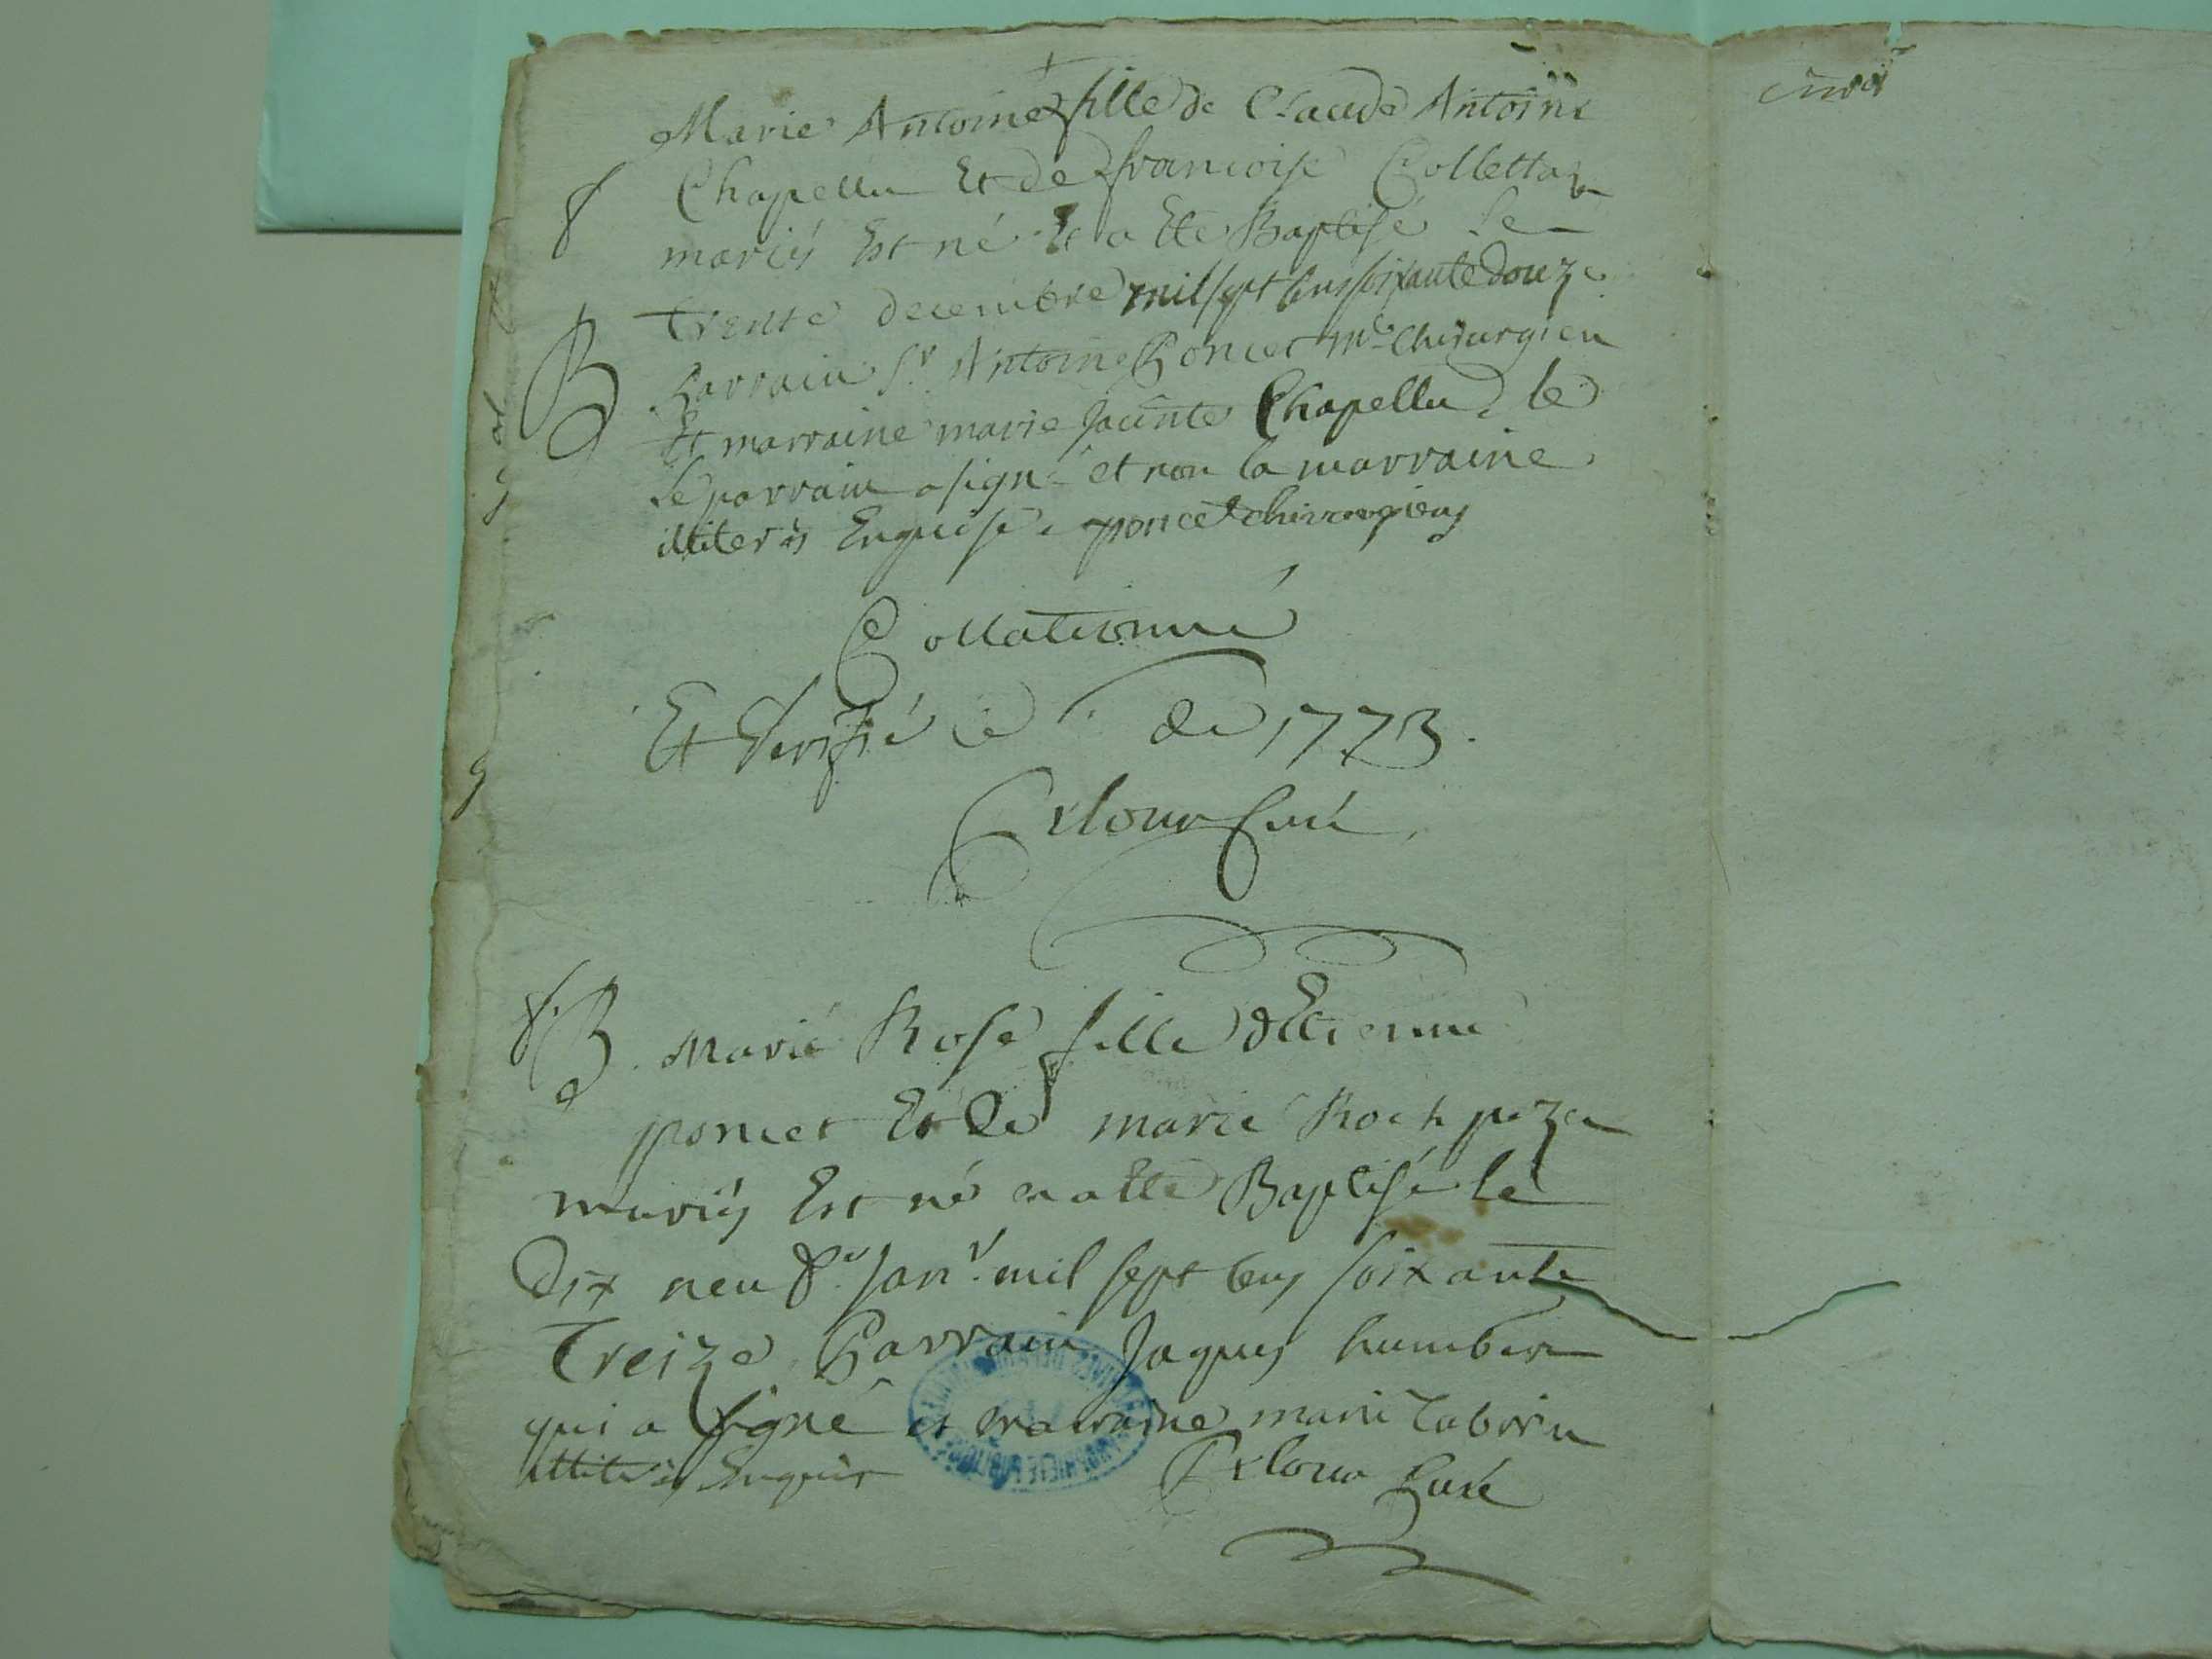 Marie Antoine fille de Claude Antoine
Chapellu Et de francoise Colletta
mariés Est né Et a Ete Baptisé le
trente decembre mil sept cens soixante douze
parrain Sr Antoine Poncet Me Chirurgien
Et marraine marie Jacinte Chapellu, le
le parrain a signé et non la marraine
illiterés Enquise poncet chirurgien
Collationné
Et Verifié ce de 1773.
Curé
B
B. Marie Rose fille d'Etienne
poncet Et de marie Roch
mariés Est né et a Ete Baptisé le
Dix neuf Janv. mil sept cens soixante
treize, Parrain Jaques humbert
qui a signé et marraine marie
illiterés Enquis Curé